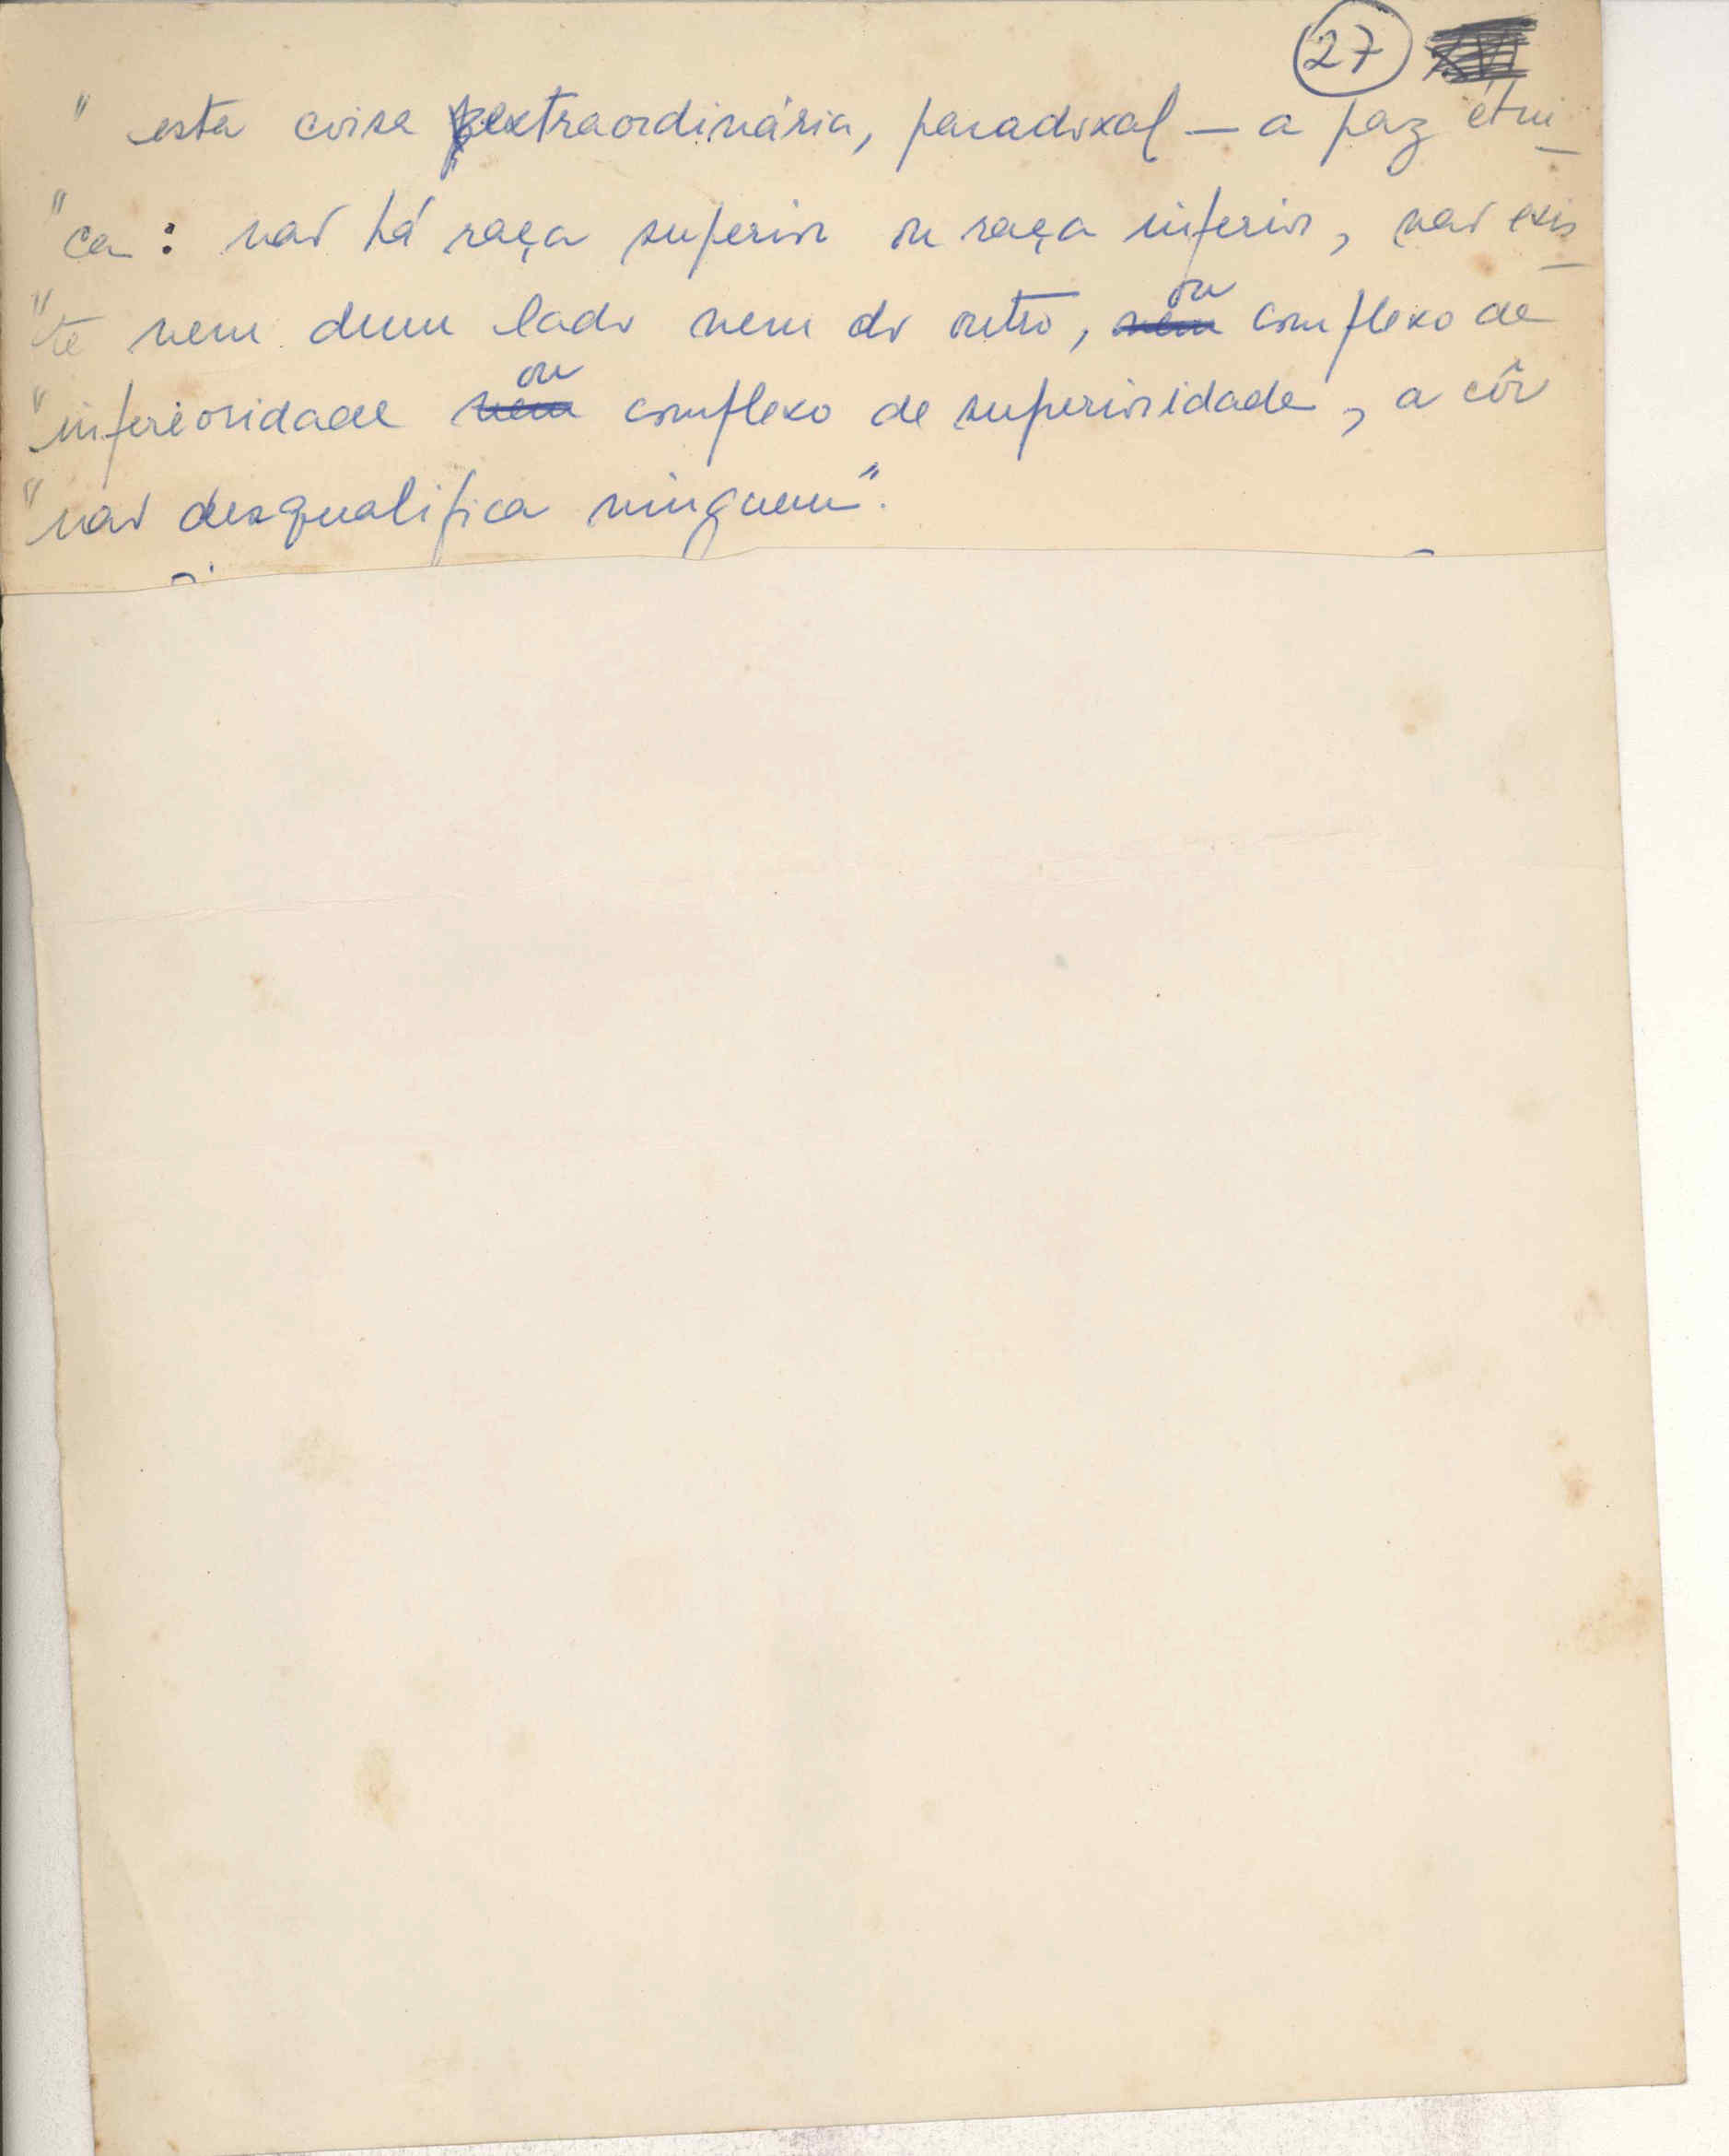 27
" esta coisa extraordinária, paradoxal — a paz étni_
"ca : não há raça superior ou raça inferior, não exis_
"te nem dum lado nem do outro, ou complexo de
"inferioridade ou complexo de superioridade, a côr
"não desqualifica ninguem".